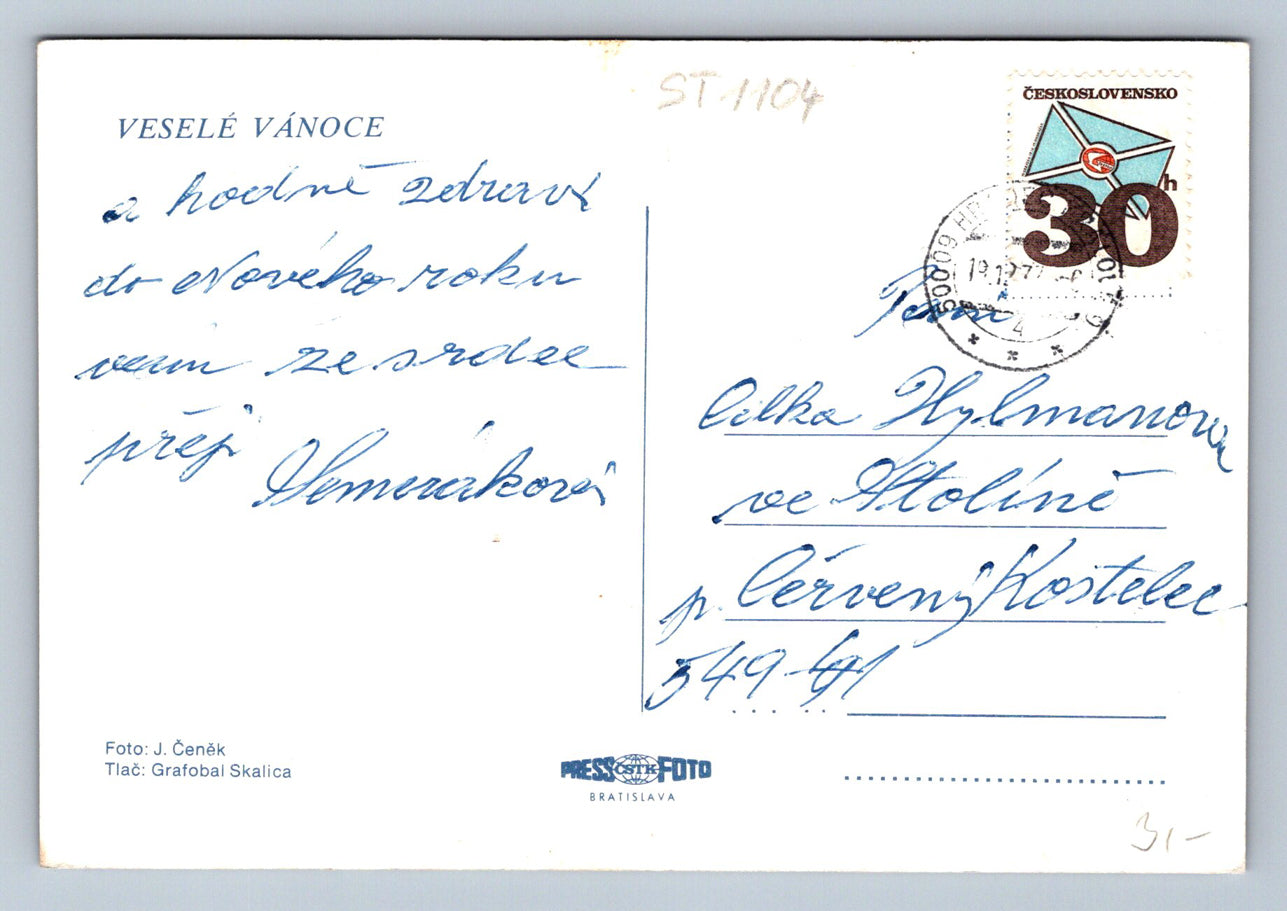 VESELÉ VÁNOCE
a hodně zdraví
do Nového roku
vám ze srdce
přeji
Semeráková
ST-1104
ČESKOSLOVENSKO
30h
500 09 HRADEC KRÁLOVÉ
19.12.77
4
Paní
Cilka Hylmanova
ve Stolíně
p. Červený Kostelec
549 41
Foto: J. Čeněk
Tlač: Grafobal Skalica
PRESS ČSTK FOTO
BRATISLAVA
31-